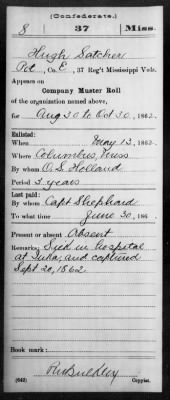 (Confederate.)
S 37 Miss.
Hugh Satcher
Pvt, Co. E, 37 Reg't Mississippi Vols.
Appears on
Company Muster Roll
of the organization named above,
for Aug 30 to Oct 30, 1862.
Enlisted:
When May 13, 1862.
Where Columbus, Miss
By whom O. S. Holland
Period 3 years
Last paid:
By whom Capt Shephard
To what time June 30, 186
Present or absent Absent
Remarks: Died in hospital
at Iuka, and captured
Sept. 20, 1862
Book mark:
(642) Copyist.